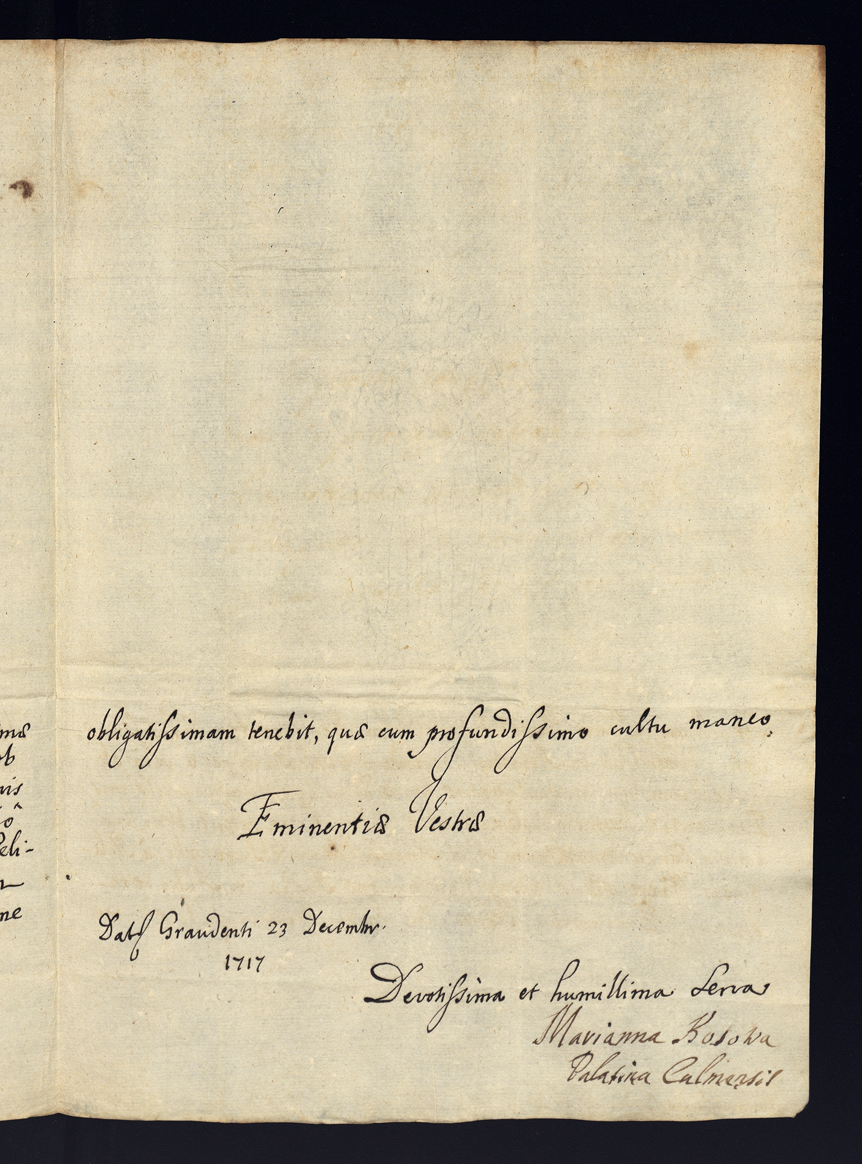 obligatissimam tenebit, quæ cum profundissimo cultu maneo.
Eminentiæ Vestræ
Dat. Graudenti 23 Decembr.
1717
Devotissima et humillima Serva
Marianna Kosowa
Palatina Culmensis
mæ
uis
Peli-
ne